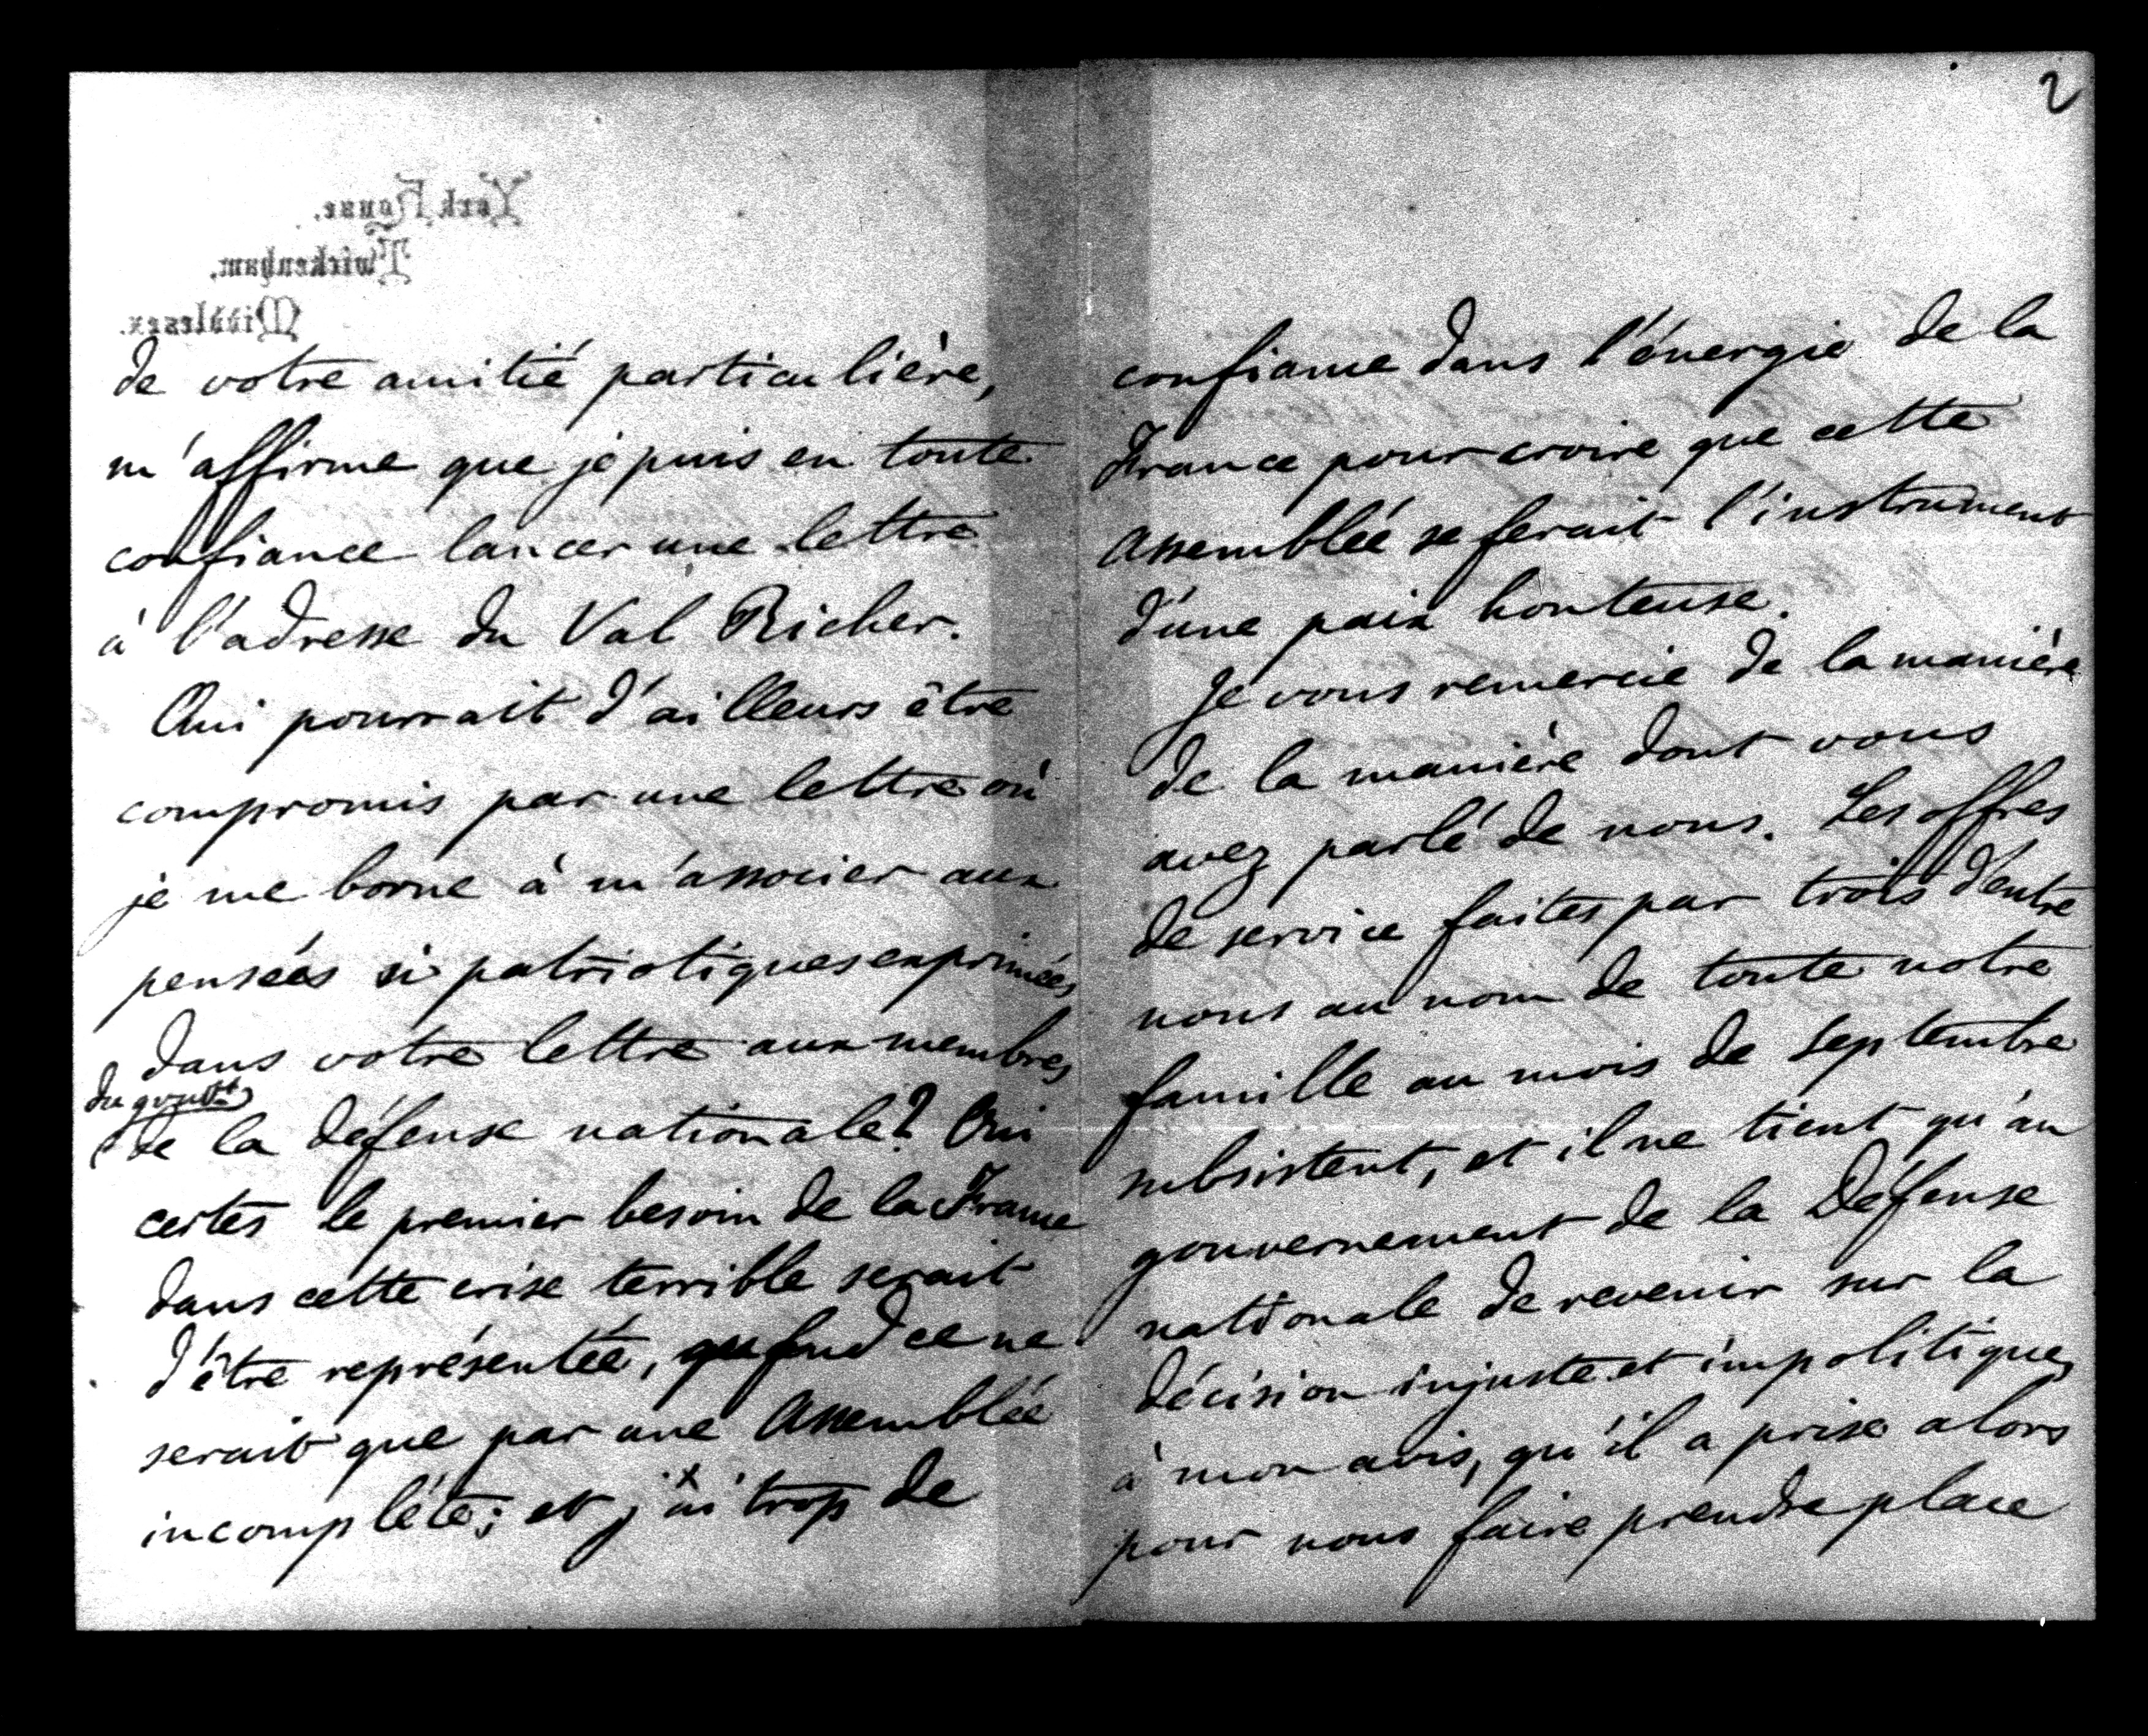 York House.
Twickenham.
Middlesex.
de votre amitié particulière,
m'affirme que je puis en toute
confiance lancer une lettre
à l'adresse du Val Richer.
Qui pourrait d'ailleurs être
compromis par une lettre où
je me borne à m'associer aux
pensées si patriotiques exprimées
dans votre lettre aux membres
du gouvt
de la défense nationale? Oui
certes le premier besoin de la France
dans cette crise terrible serait
d'être représentée, ce ne
serait que par une Assemblée
incomplète; et j'ai trop de
2
confiance dans l'énergie de la
France pour croire que cette
Assemblée se ferait l'instrument
d'une paix honteuse.
Je vous remercie de la manière
de la manière dont vous
avez parlé de nous. Les offres
de service faites par trois d'entre
nous au nom de toute notre
famille au mois de Septembre
subsistent, et il ne tient qu'au
gouvernement de la Défense
nationale de revenir sur la
décision injuste et impolitique,
à mon avis, qu'il a prise alors
pour nous faire prendre place